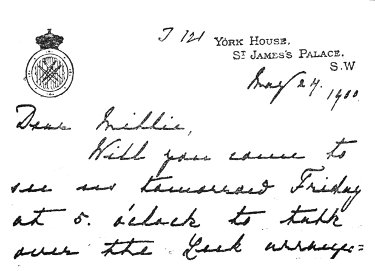 T 121
YORK HOUSE,
ST JAMES'S PALACE.
S.W
May 24. 1900.
Dear Millie,
Will you come to
see us tomorrow Friday
at 5. o'clock to talk
over the Cork arrange=